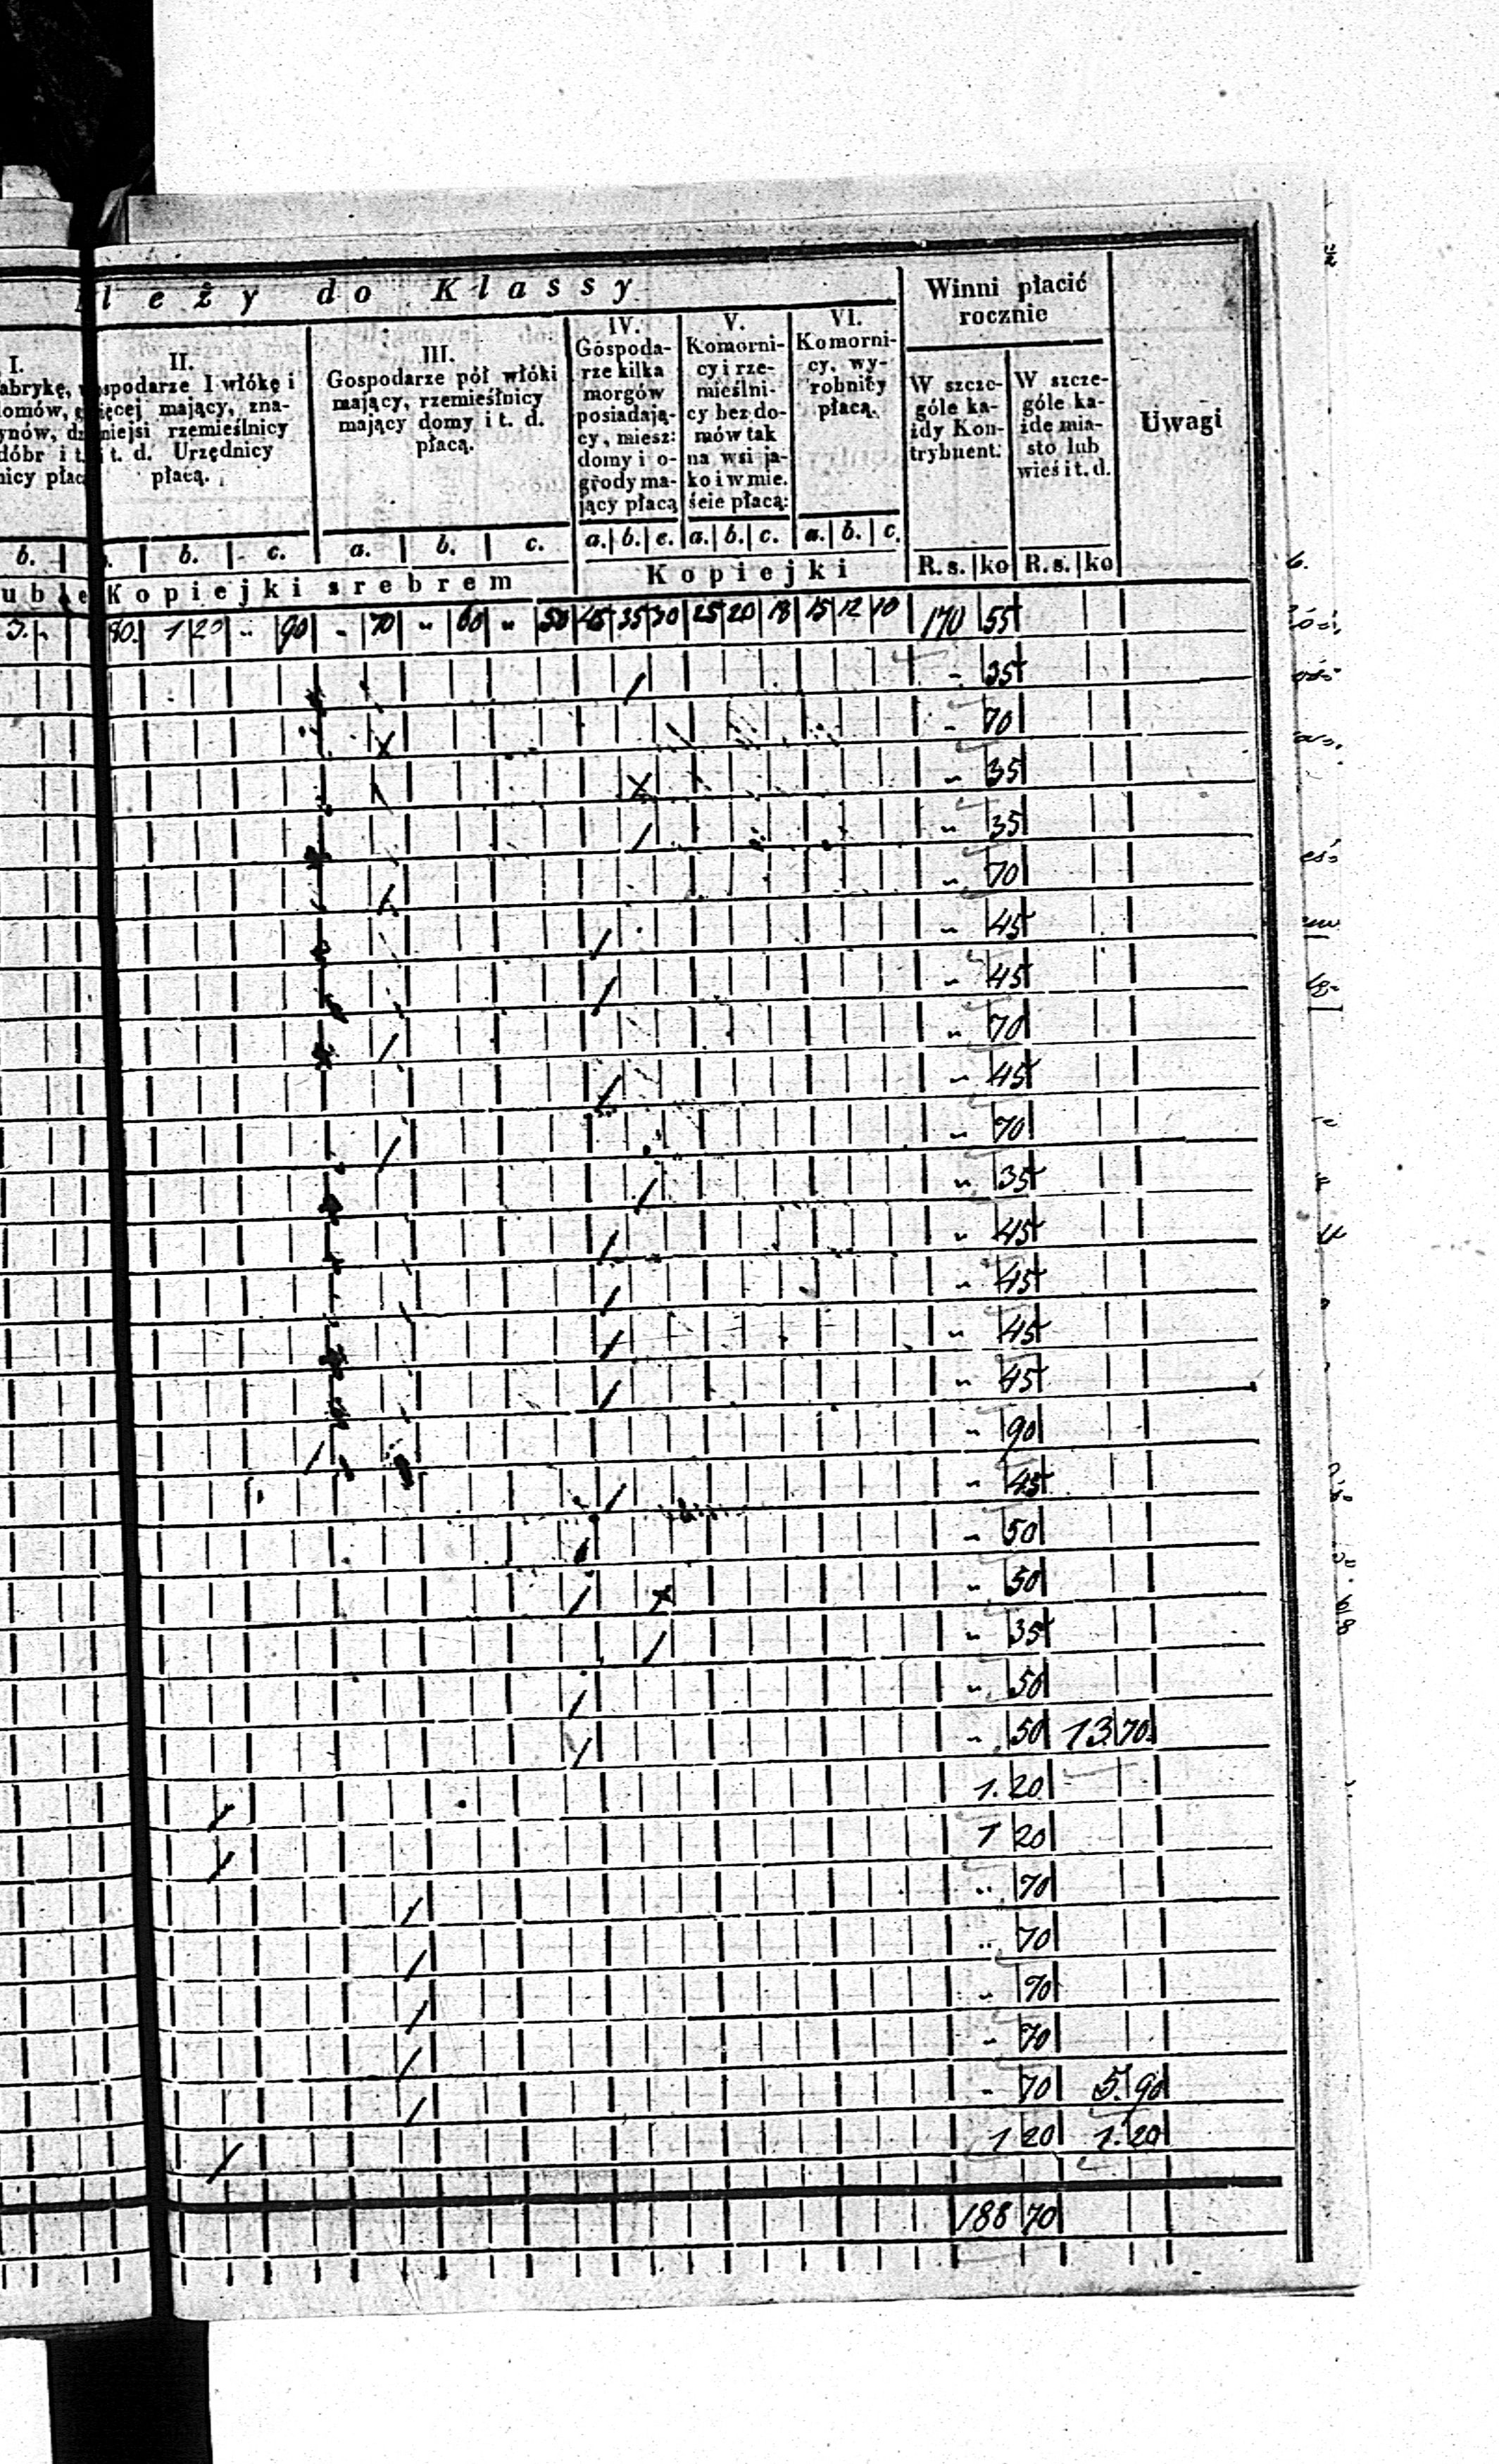 leży do Klassy
Winni płacić
rocznie
Uwagi
I.
abrykę,
omów,
ynów,
dóbr i t.
nicy płac
II.
spodarze 1 włókę i
ięcej mający, zna-
niejsi rzemieślnicy
i t. d. Urzędnicy
płacą.
III.
Gospodarze pół włóki
mający, rzemieślnicy
mający domy i t. d.
płacą.
IV.
Gospoda-
rze kilka
morgów
posiadają-
cy, miesz:
domy i o-
grody ma-
jący płacą
V.
Komorni-
cy i rze-
mieślni-
cy bez do-
mów tak
na wsi ja-
ko i w mie.
ście płacą:
VI.
Komorni-
cy, wy-
robnicy
płacą.
W szcze-
góle ka-
żdy Kon-
trybuent:
W szcze-
góle ka-
żde mia-
sto lub
wieś i t. d.
b. b. c. a. b. c. a. b. c. a. b. c. a. b. c.
uble Kopiejki srebrem Kopiejki R. s. ko R. s. ko
3. 80. 1 20 " 90 " 70 " 60 " 50 45 35 30 25 20 18 15 12 10 170 55
" 35
" 70
" 35
" 35
" 70
" 45
" 45
" 70
" 45
" 70
" 35
" 45
" 45
" 45
" 45
" 90
" 45
" 50
" 50
" 35
" 50
" 50 13. 70.
1. 20
1 20
" 70
" 70
" 70
" 70
" 70 5. 90
1 20 1. 20
188 70